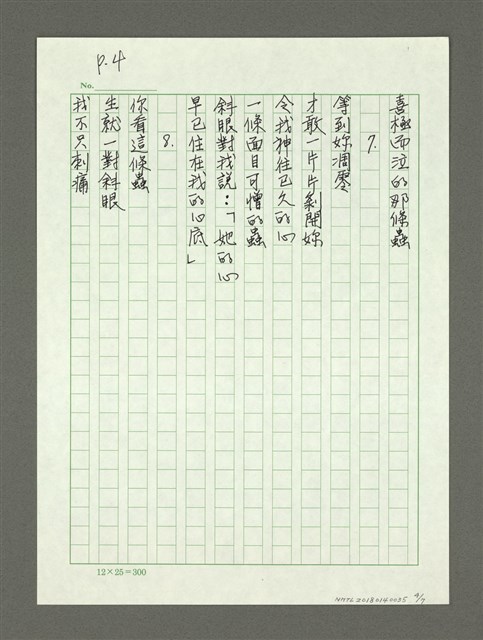 P.4
No.
喜極而泣的那條蟲
7.
等到妳凋零
才敢一片片剝開妳
令我神往已久的心
一條面目可憎的蟲
斜眼對我說：「她的心
早已住在我的心底」
8.
你看這條蟲
生就一對斜眼
找不只刺痛
12×25=300
NMTL20180140035 4/7